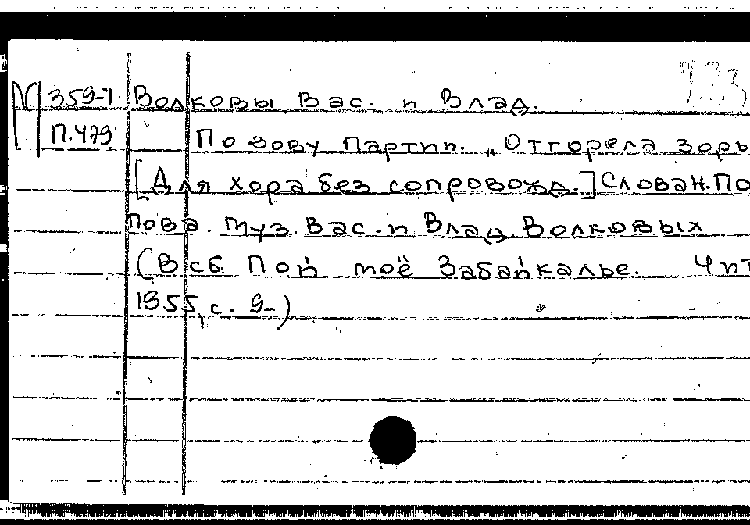 М 359-7 Волковы Вас. и Влад.
П.479 По зову партии. „Отгорела зорь
[Для хора без сопровожд.] Слова Н. По
пова. Муз. Вас. и Влад. Волковых
(В сб. Пой моё Забайкалье. Чит
1955, с. 9-)